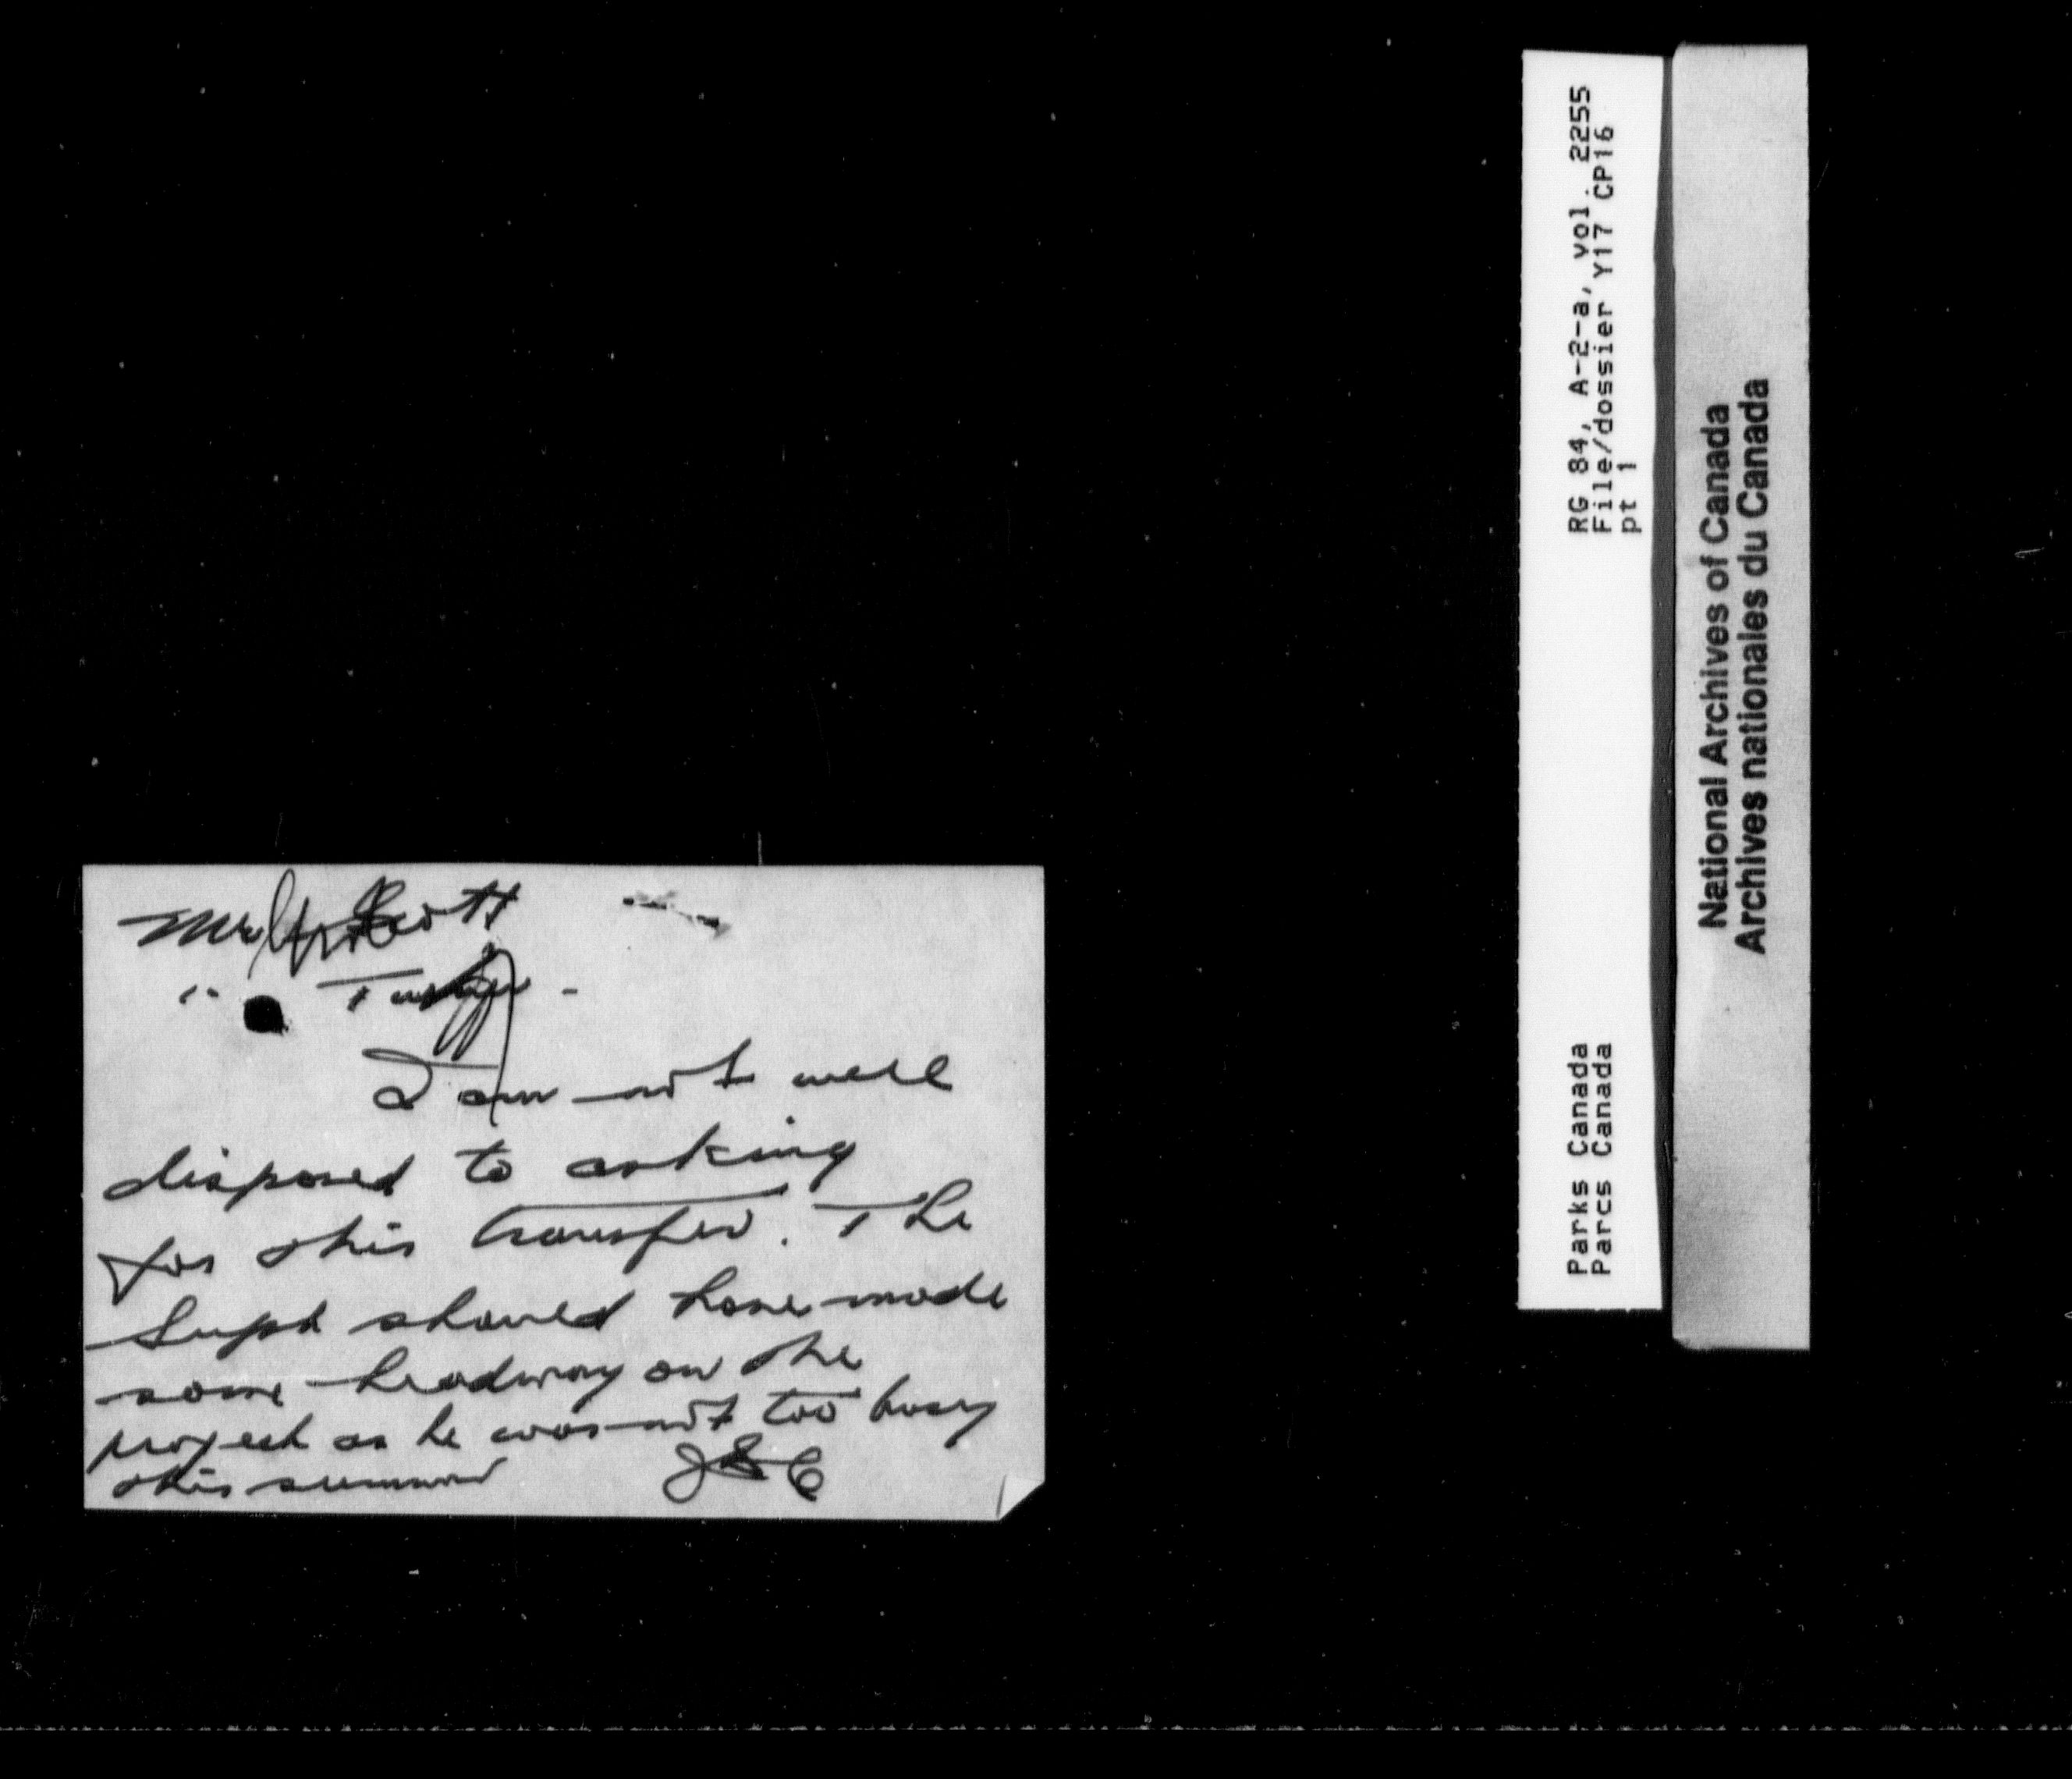 Mr Scott
" -
I am not well
disposed to asking
for this transfer. The
Supt should have made
some headway on the
project as he was not too busy
this summer
RG 84, A-2-a, vol. 2255
File/dossier Y17 CP16
pt 1
Parks Canada
Parcs Canada
National Archives of Canada
Archives nationales du Canada